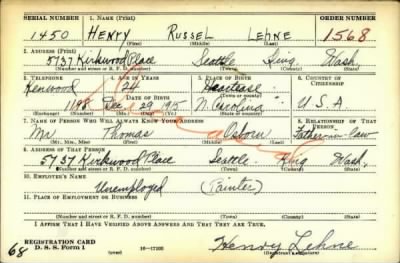 SERIAL NUMBER 1. NAME (Print) ORDER NUMBER
1450 HENRY RUSSEL LEHNE 1568
(First) (Middle) (Last)
2. ADDRESS (Print)
5737 Kirkwood Place Seattle King Wash.
(Number and street or R. F. D. number) (Town) (County) (State)
3. TELEPHONE 4. AGE IN YEARS 5. PLACE OF BIRTH 6. COUNTRY OF CITIZENSHIP
Kenwood 24 Heartease
DATE OF BIRTH (Town or county)
1198 Dec 29 1915 N. Carolina U S A
(Exchange) (Number) (Mo.) (Day) (Yr.) (State or country)
7. NAME OF PERSON WHO WILL ALWAYS KNOW YOUR ADDRESS 8. RELATIONSHIP OF THAT PERSON
Mr Thomas Osborn Father-in-law
(Mr., Mrs., Miss) (First) (Middle) (Last)
9. ADDRESS OF THAT PERSON
5737 Kirkwood Place Seattle King Wash.
(Number and street or R. F. D. number) (Town) (County) (State)
10. EMPLOYER'S NAME
Unemployed (Painter)
11. PLACE OF EMPLOYMENT OR BUSINESS
(Number and street or R. F. D. number) (Town) (County) (State)
I AFFIRM THAT I HAVE VERIFIED ABOVE ANSWERS AND THAT THEY ARE TRUE.
REGISTRATION CARD
D. S. S. Form 1 (over) 16—17105 Henry Lehne
68 (Registrant's signature)